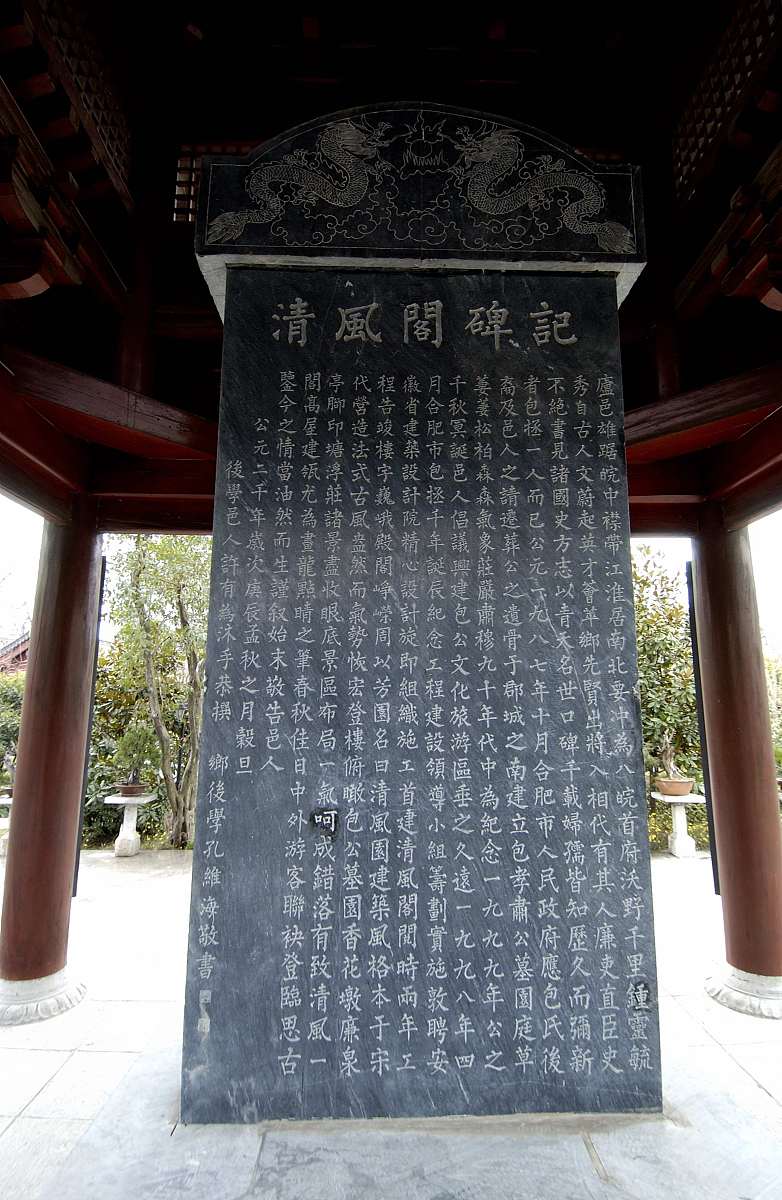 清風閣碑記
廬邑雄踞皖中襟帶江淮居南北要冲為八皖首府沃野千里鍾靈毓
秀自古人文蔚起英才薈萃鄉先賢出將入相代有其人廉吏直臣史
不絕書見諸國史方志以青天名世口碑千載婦孺皆知歷久而彌新
者包拯一人而已公元一九八七年十月合肥市人民政府應包氏後
裔及邑人之請遷葬公之遺骨于郡城之南建立包孝肅公墓園庭草
萋萋松柏森森氣象莊嚴肅穆九十年代中為紀念一九九九年公之
千秋冥誕邑人倡議興建包公文化旅游區垂之久遠一九九八年四
月合肥市包拯千年誕辰紀念工程建設領導小組籌劃實施敦聘安
徽省建築設計院精心設計旋即組織施工首建清風閣閱時兩年工
程告竣樓宇巍峨殿閣崢嶸周以芳園名曰清風園建築風格本于宋
代營造法式古風盎然而氣勢恢宏登樓俯瞰包公墓園香花墩廉泉
亭腳印塘浮莊諸景盡收眼底景區布局一氣呵成錯落有致清風一
閣高屋建瓴尤為畫龍點睛之筆春秋佳日中外游客聯袂登臨思古
鑒今之情當油然而生謹叙始末敬告邑人
公元二千年歲次庚辰孟秋之月穀旦
後學邑人許有為沐手恭撰
鄉後學孔維海敬書